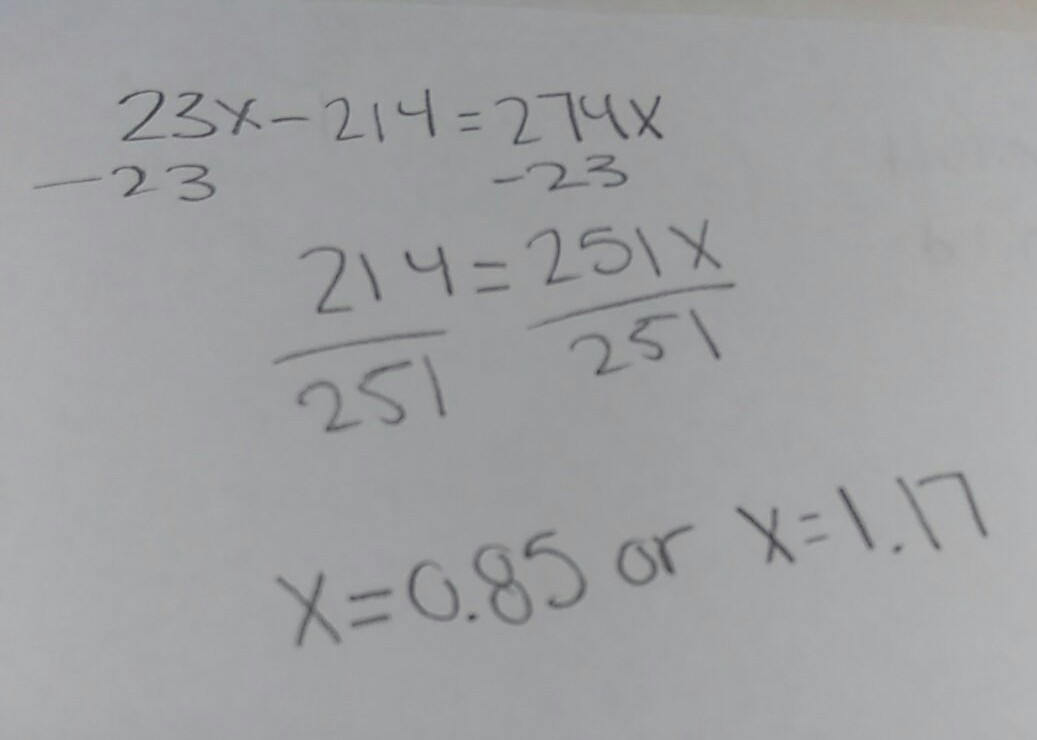 23x-214=274x
-23 -23
214=251x
251 251
x=0.85 or x=1.17